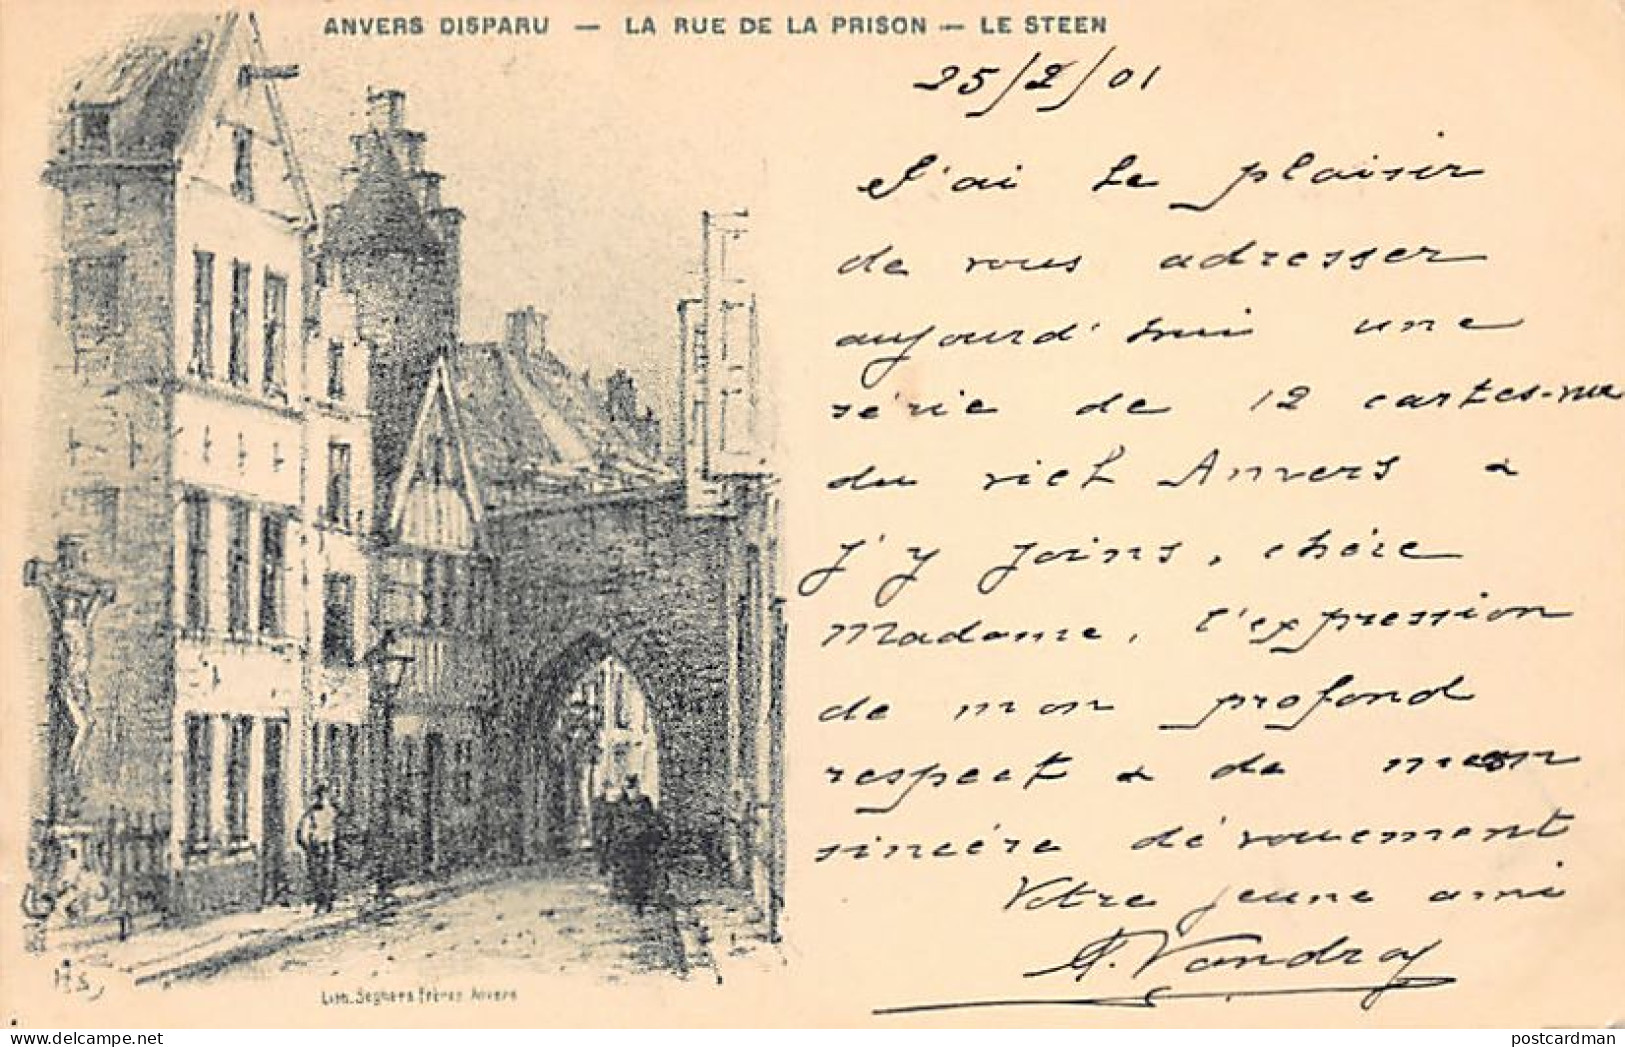 ANVERS DISPARU — LA RUE DE LA PRISON — LE STEEN
25/2/01
J'ai le plaisir
de vous adresser
aujourd'hui une
série de 12 cartes-vue
du vieil Anvers &
j'y joins, chère
Madame, l'expression
de mon profond
respect & de mon
sincère dévouement
Votre jeune ami
Vandray
HS
Lith. Seghers Frères Anvers
postcardman